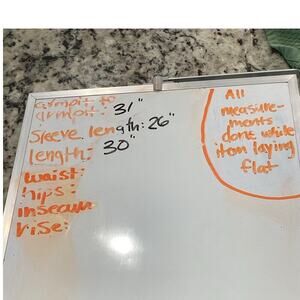 armpit to
armpit: 31"
Sleeve length: 26"
length: 30"
waist:
hips:
inseam
rise:
All
measure-
ments
done while
item laying
flat